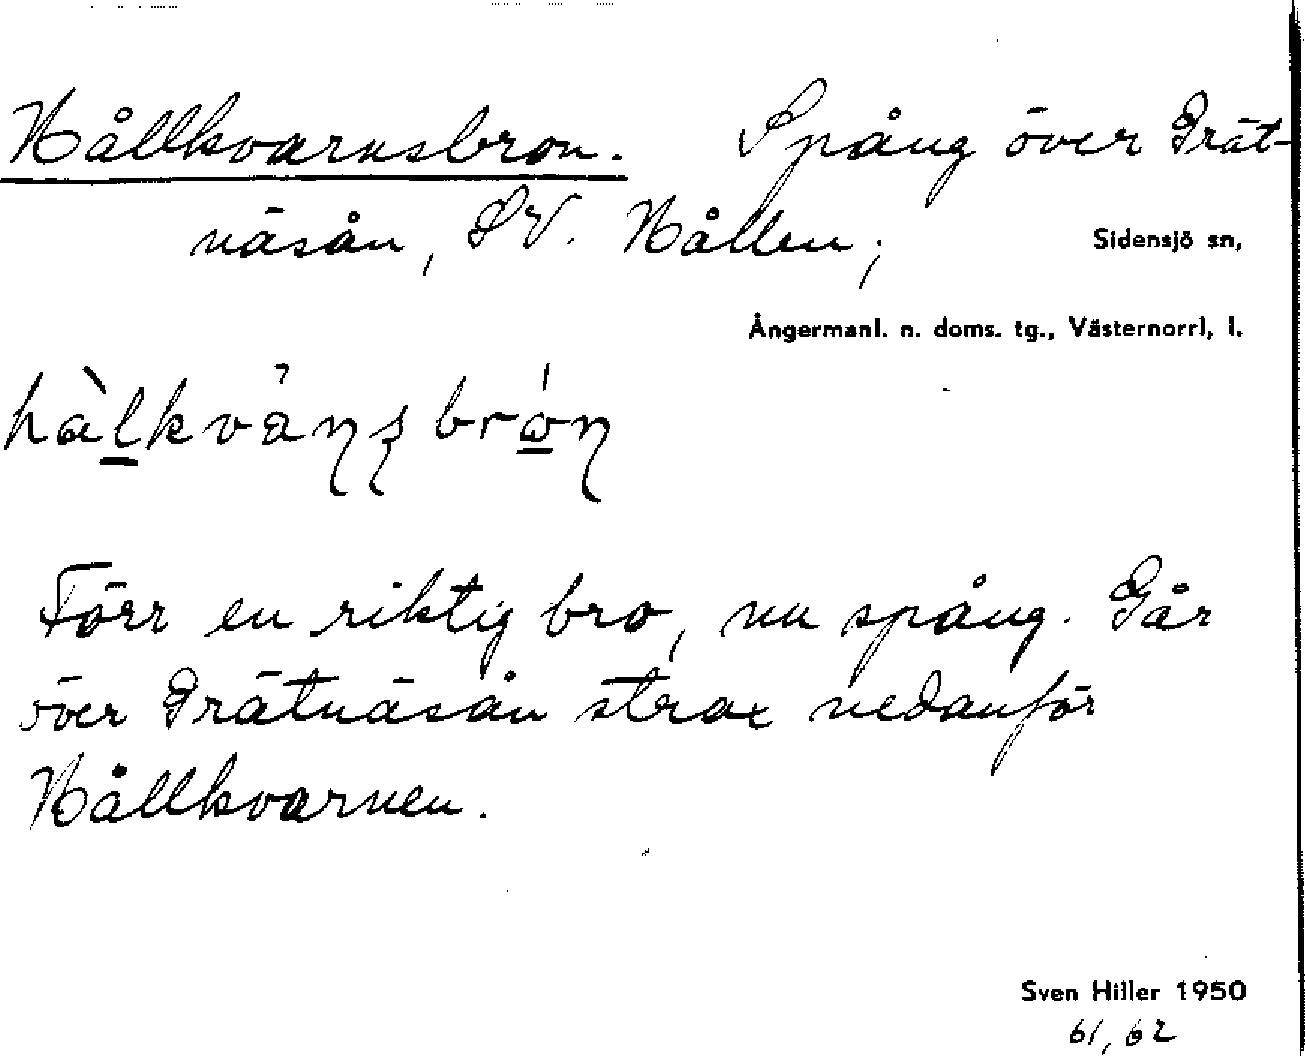 Hållkvarnsbron. Spång över Grät-
näsån, SV. Hållen;
Sidensjö sn,
Ångermanl. n. doms. tg., Västernorrl, l.
Förr en riktig bro, nu spång. Går
över Grätnäsån strax nedanför
Hållkvarnen.
Sven Hiller 1950
61, 62